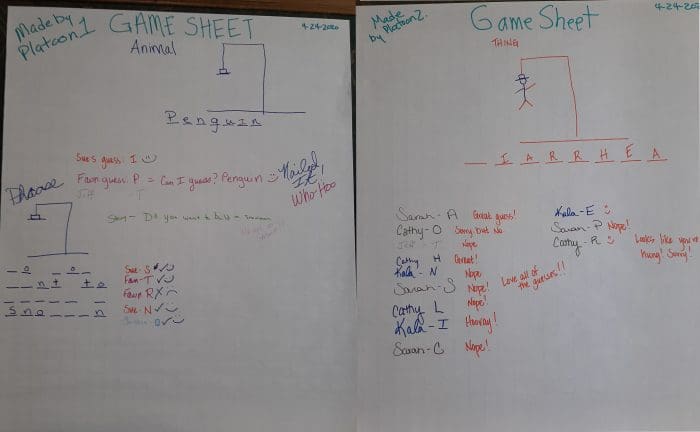 Made by Platoon 1
GAME SHEET
4-24-2020
Animal
Penguin
Sue's guess: I
Fawn guess: P = Can I guess? Penguin
Nailed It, Who-Hoo
Jeff T
Phrase
Do you want to
_ o _ o _
_ _ n t t o
S n o _ _ _ n
Sue- S ✓
Fawn- T ✓
Fawn R X
Sue- N ✓
Made by Platoon 2.
Game Sheet
4-24-20
THING
_ I A R R H E A
Sarah- A Great guess!
Cathy- O Sorry, but No.
Jeff - T Nope
Cathy H Great!
Kala- N Nope
Sarah- S Nope! Love all of the guesses!!
Cathy L Nope!
Kala- I Hooray!
Sarah- C Nope!
Kala- E
Sarah- P Nope!
Cathy- R Looks like you're hung! Sorry!